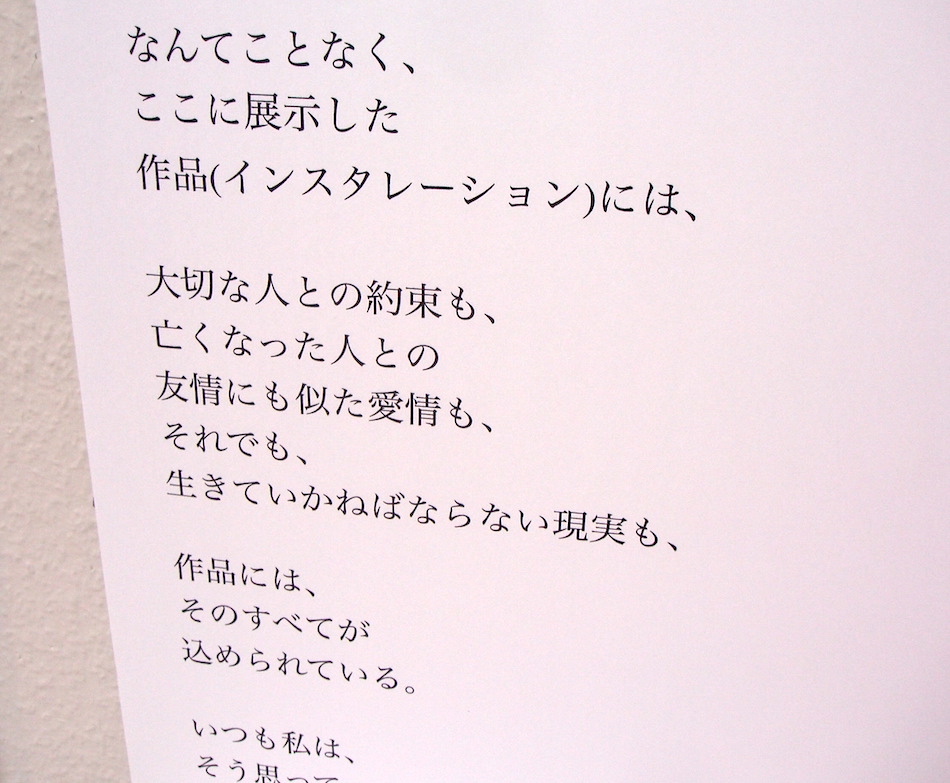 なんてことなく、
ここに展示した
作品(インスタレーション)には、
大切な人との約束も、
亡くなった人との
友情にも似た愛情も、
それでも、
生きていかねばならない現実も、
作品には、
そのすべてが
込められている。
いつも私は、
そう思って